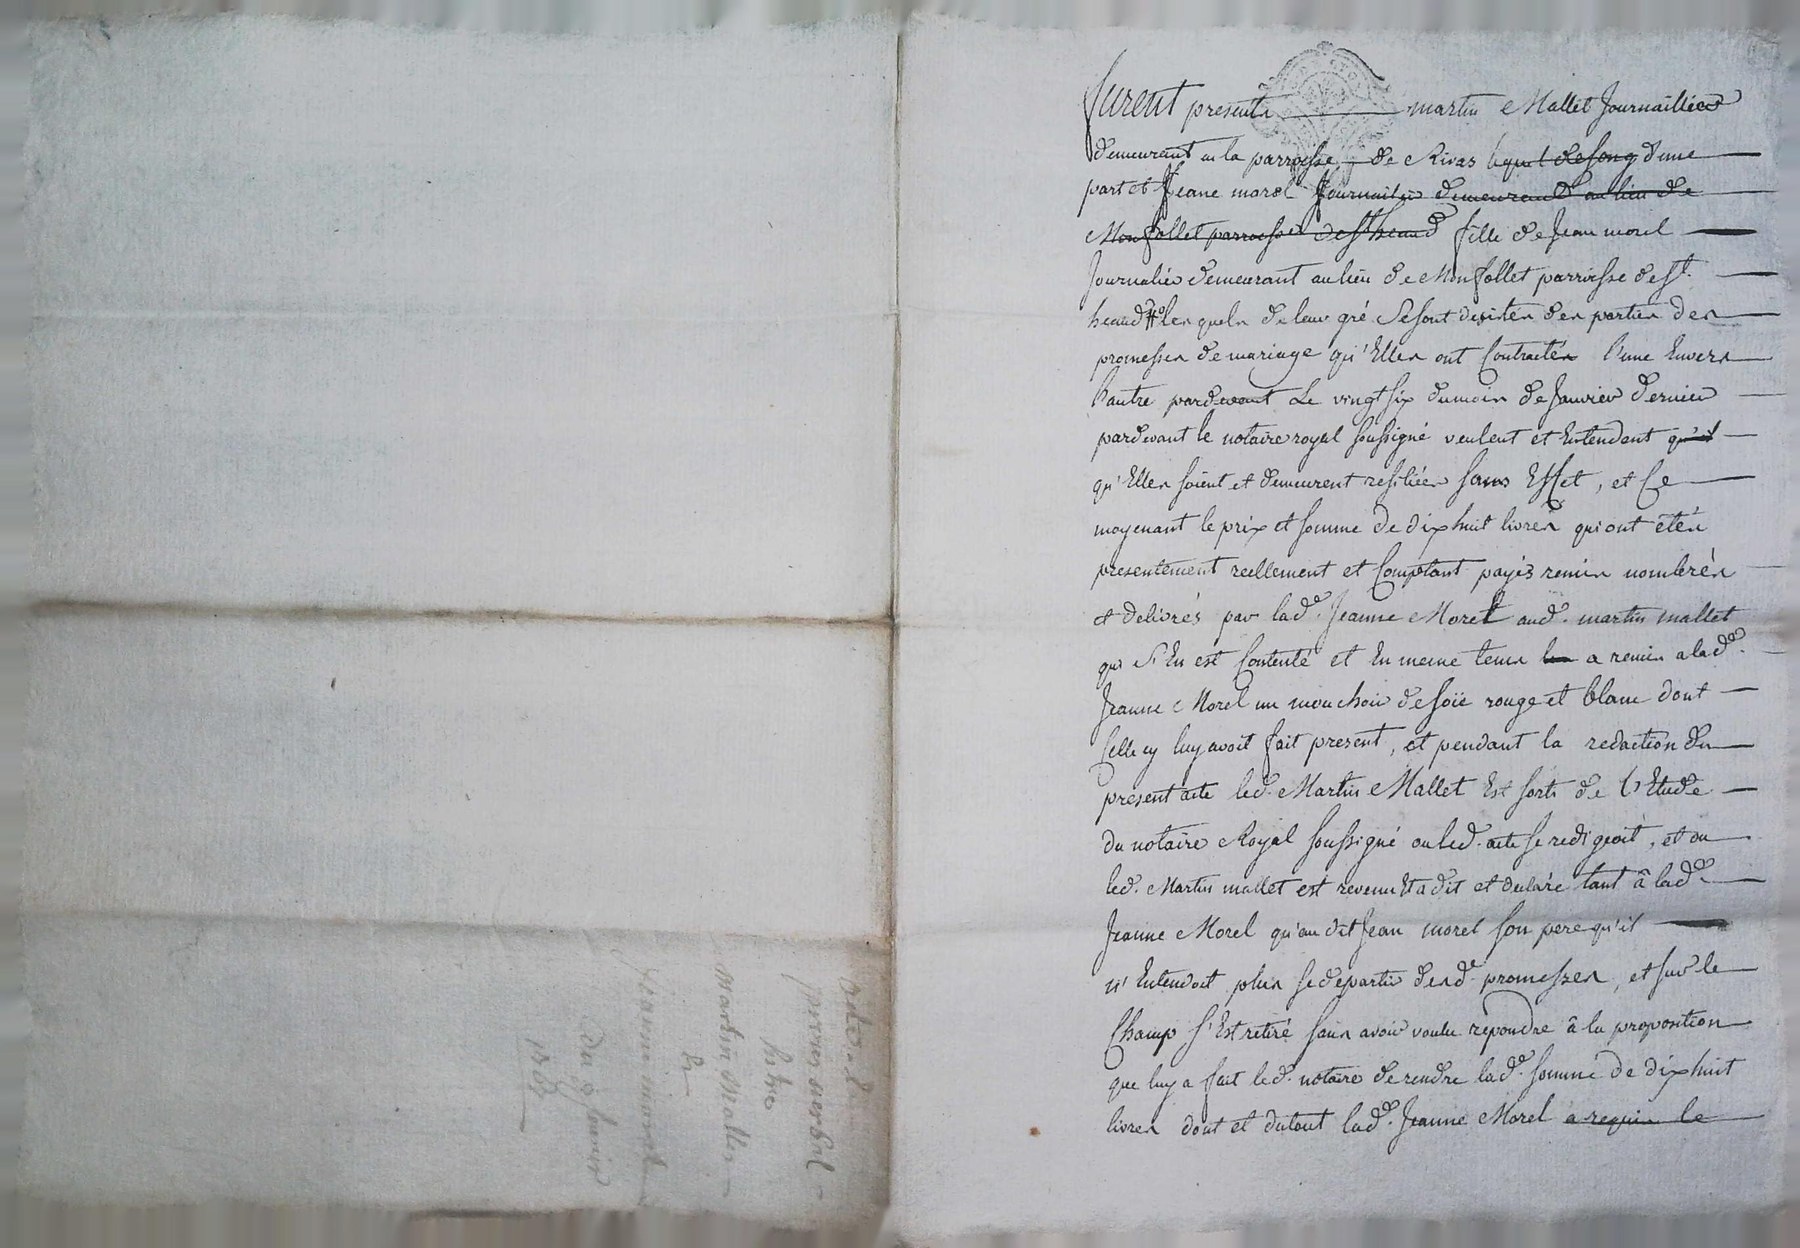 furent presents martin Mallet Journaillier
demeurant en la parroisse de Rivas lequel de son g d'une
part et Jeane morel Journaliere demeurent au lieu de
Monfollet parroisse de St heand fille de Jean morel
Journalier demeurant au lieu de Monfollet parroisse de St.
heand lesquels de leur gré se sont desistés des parties des
promesses de mariage qu'Elles ont Contractés l'une Envers
l'autre pardevant Le vingt six du mois de Janvier dernier
pardevant le notaire royal soussigné veulent et Entendent qu'il
qu'Elles soient et demeurent resiliées sans Effet, et Ce
moyenant le prix et somme de dix huit livres qui ont étés
presentement reellement et Comptant payés remis nombrés
et délivrés par lade. Jeanne Morel aud. martin mallet
qui S'En est Contenté et En meme tems a remis a lade.
Jeanne Morel un mouchoir de soïe rouge et blanc dont
Celle cy luy avoit fait present, et pendant la redaction du
present acte led. Martin Mallet Est sorti de l'Etude
du notaire Royal soussigné ou led. acte se redigeoit, et ou
led. Martin mallet est revenu Et a dit et declare tant â lade.
Jeanne Morel qu'au dit Jean morel son pere qu'il
n'Entendoit plus se departir desde. promesses, et sur le
Champ s'Est retiré sans avoir voulu repondre â la proposition
que luy a fait led. notaire de rendre lade. somme de dix huit
livres dont et du tout lade. Jeanne Morel a requis le
martin Mallet
Et
jeanne morel
du 9 fevrier